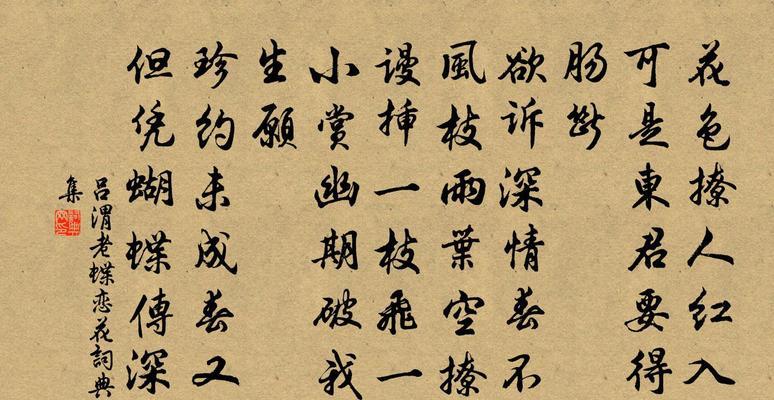 花色撩人红入
可是東君要得
肠断
欲诉深情春不
風枝雨葉空撩
谩插一枝飛一
小赏幽期破我
生願
珍约未成春又
但凭蝴蝶傳深
吕渭老蝶恋花詞典
集